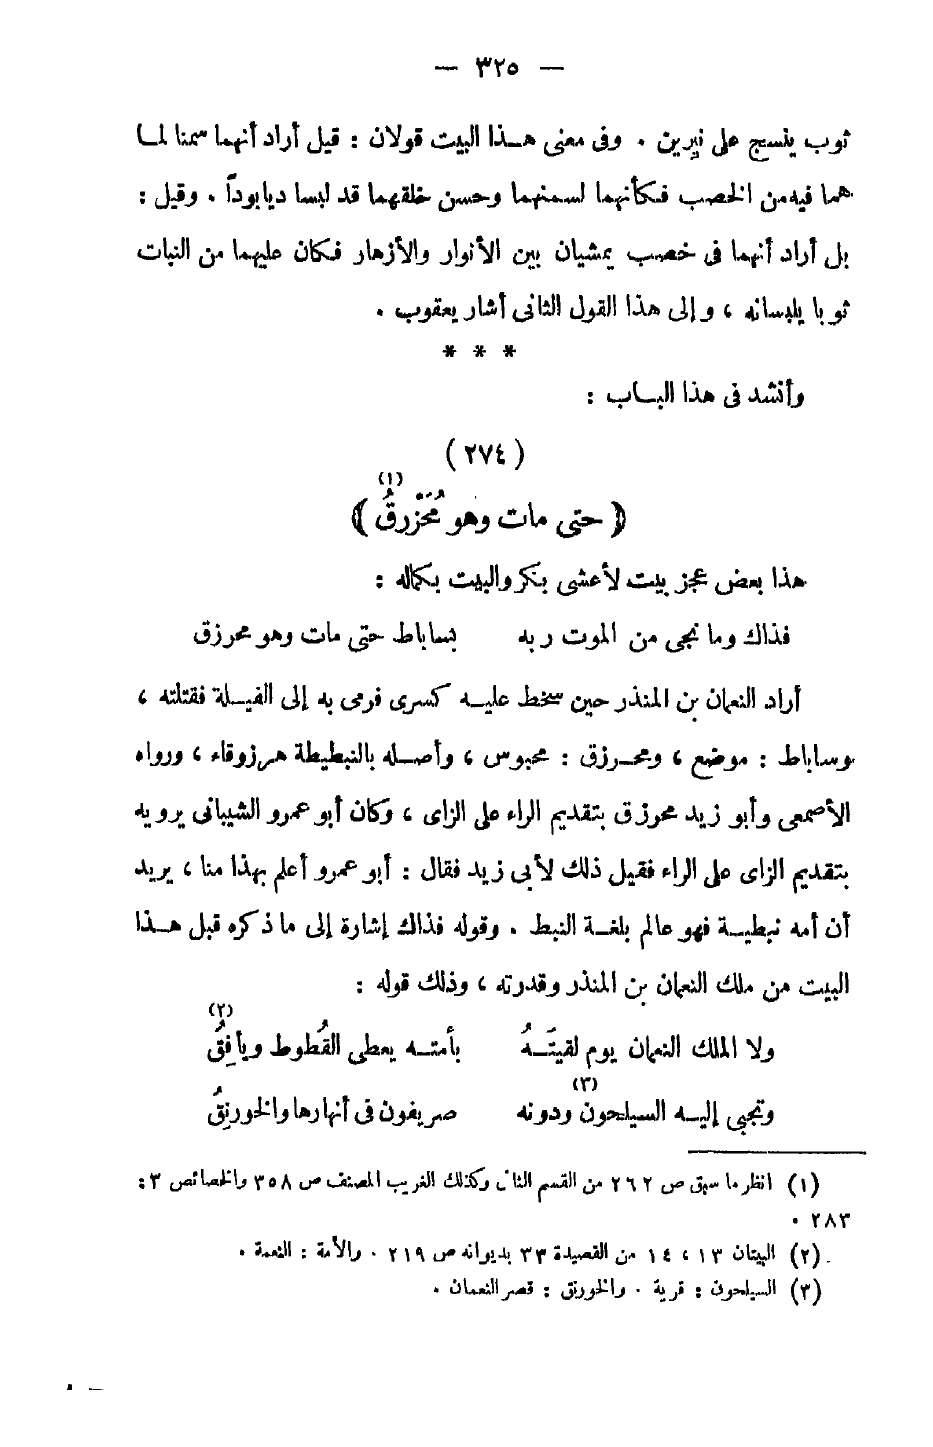 — ٣٢٥ —
ثوب ينسج على نيرين . وفى معنى هـذا البيت قولان : قيل أراد أنهما سمنا لمـا
هما فيه من الخصب فكأنهما لسمنهما وحسن خلقهما قد لبسا ديابوداً . وقيل :
بل أراد أنهما فى خصب يمشيان بين الأنوار والأزهار فكان عليهما من النبات
ثوبا يلبسانه ، وإلى هذا القول الثانى أشار يعقوب .
* * *
وأنشد فى هذا البـاب :
(٢٧٤)
(( حتى مات وهو مُحَزْرقُ )) (١)
هذا بعض عجز بيت لأعشى بكر والبيت بكماله :
فذاك وما نجى من الموت ربه بساباط حتى مات وهو محرزق
أراد النعمان بن المنذر حين سخط عليـه كسرى فرمى به إلى الفيـلة فقتلته ،
وساباط : موضع ، ومحـرزق : محبوس ، وأصـله بالنبطيطة هرزوقاء ، ورواه
الأصمعى وأبو زيد محرزق بتقديم الراء على الزاى ، وكان أبو عمرو الشيبانى يرويه
بتقديم الزاى على الراء فقيل ذلك لأبى زيد فقال : أبو عمرو أعلم بهذا منا ، يريد
أن أمه نبطيـة فهو عالم بلغـة النبط . وقوله فذاك إشارة إلى ما ذكره قبل هـذا
البيت من ملك النعمان بن المنذر وقدرته ، وذلك قوله :
ولا الملك النعمان يوم لقيتَـهُ بأمتـه يعطى القُطوط ويأفِقُ (٢)
وتجبى إليـه السيلحون ودونه (٣) صريفون فى أنهارها والخورنقُ
(١) انظر ما سبق ص ٢٦٢ من القسم الثانى وكذلك الغريب المصنف ص ٣٥٨ والخصائص ٣ :
٢٨٣ .
(٢) البيتان ١٣ ، ١٤ من القصيدة ٣٣ بديوانه ص ٢١٩ . والأمة : النعمة .
(٣) السيلحون : قرية . والخورنق : قصر النعمان .